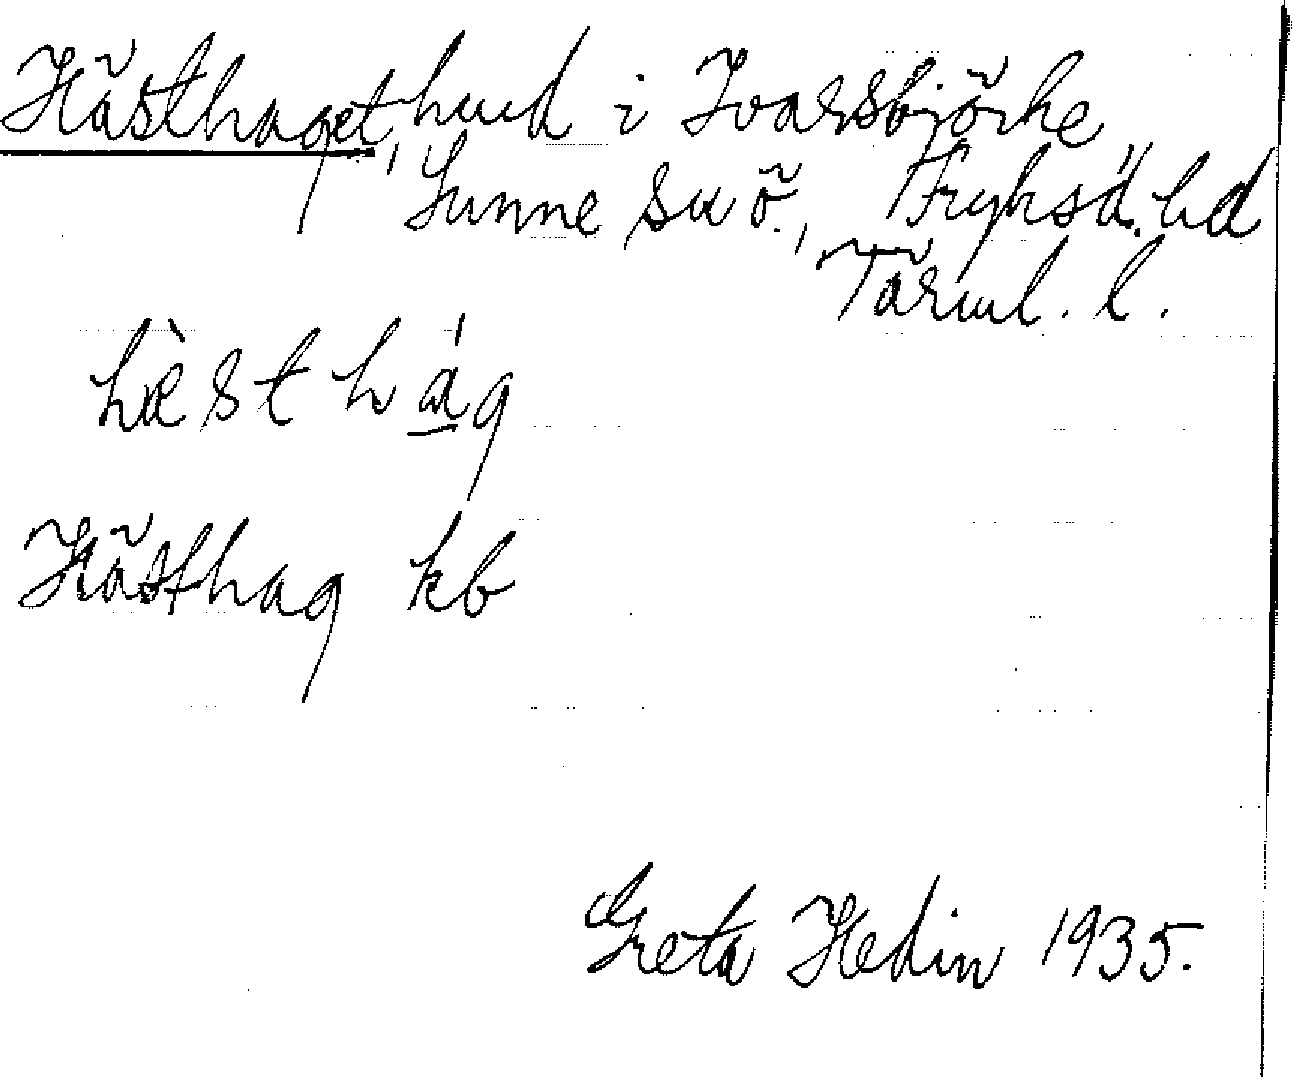 Hästhaget, hmd i Ivarsbjörke
Sunne sn ö., Fryksd. hd
Värml. l.
hὲst hág
Hästhag kb
Greta Hedin 1935.